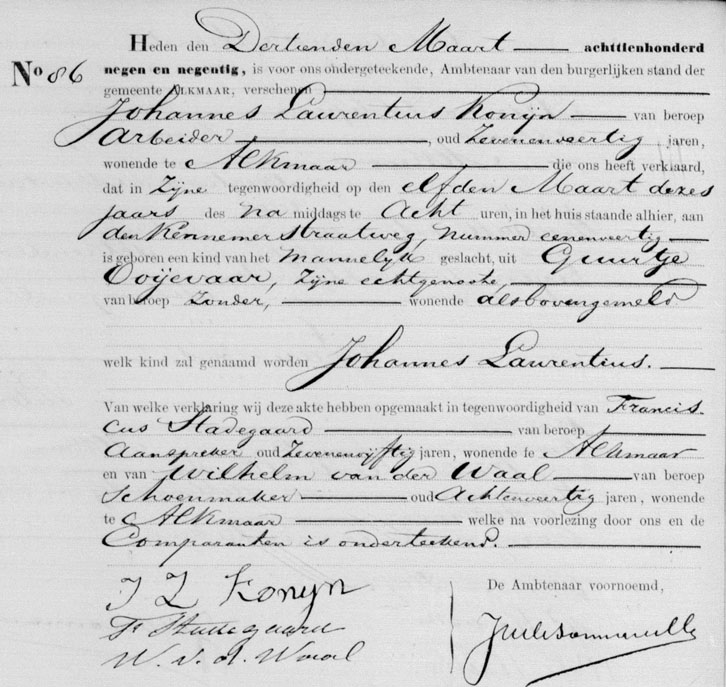 Heden den Dertienden Maart achttienhonderd
No 86 negen en negentig, is voor ons ondergeteekende, Ambtenaar van den burgerlijken stand der
gemeente ALKMAAR, verschenen
Johannes Laurentius Konijn van beroep
Arbeider, oud Zevenenveertig jaren,
wonende te Alkmaar die ons heeft verklaard,
dat in Zijne tegenwoordigheid op den elfden Maart dezes
jaars des Na middags te Acht uren, in het huis staande alhier, aan
den Kennemerstraatweg, nummer eenenveertig
is geboren een kind van het Mannelijk geslacht, uit Guurtje
Ooijevaar, Zijne echtgenoote,
van beroep Zonder, wonende alsbovengemeld
welk kind zal genaamd worden Johannes Laurentius.
Van welke verklaring wij deze akte hebben opgemaakt in tegenwoordigheid van Francis-
cus Stadegaard van beroep
Aanspreker oud Zevenenvijftig jaren, wonende te Alkmaar
en van Wilhelm van der Waal van beroep
Schoenmaker oud Achtenveertig jaren, wonende
te Alkmaar welke na voorlezing door ons en de
Comparanten is onderteekend.
J L Konijn
De Ambtenaar voornoemd,
Fr Stadegaard
W. v. d. Waal